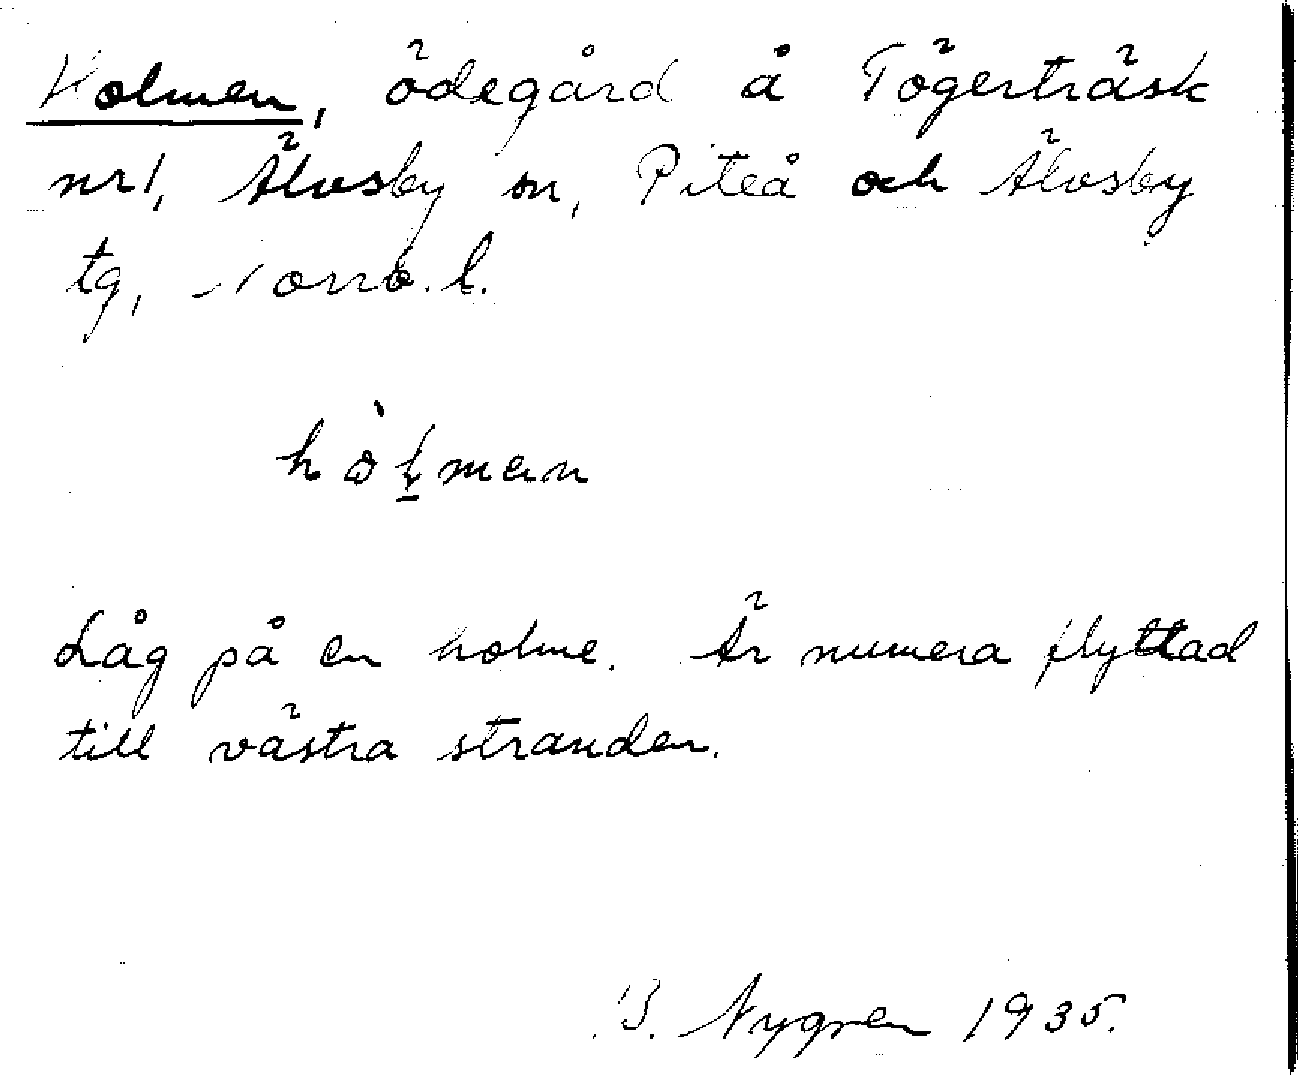 Holmen, ödegård å Tögerträsk
nr 1, Älvsby sn, Piteå och Älvsby
tg, Norrb. l.
hòḷman
Låg på en holme. Är numera flyttad
till västra stranden.
B. Nygren 1935.